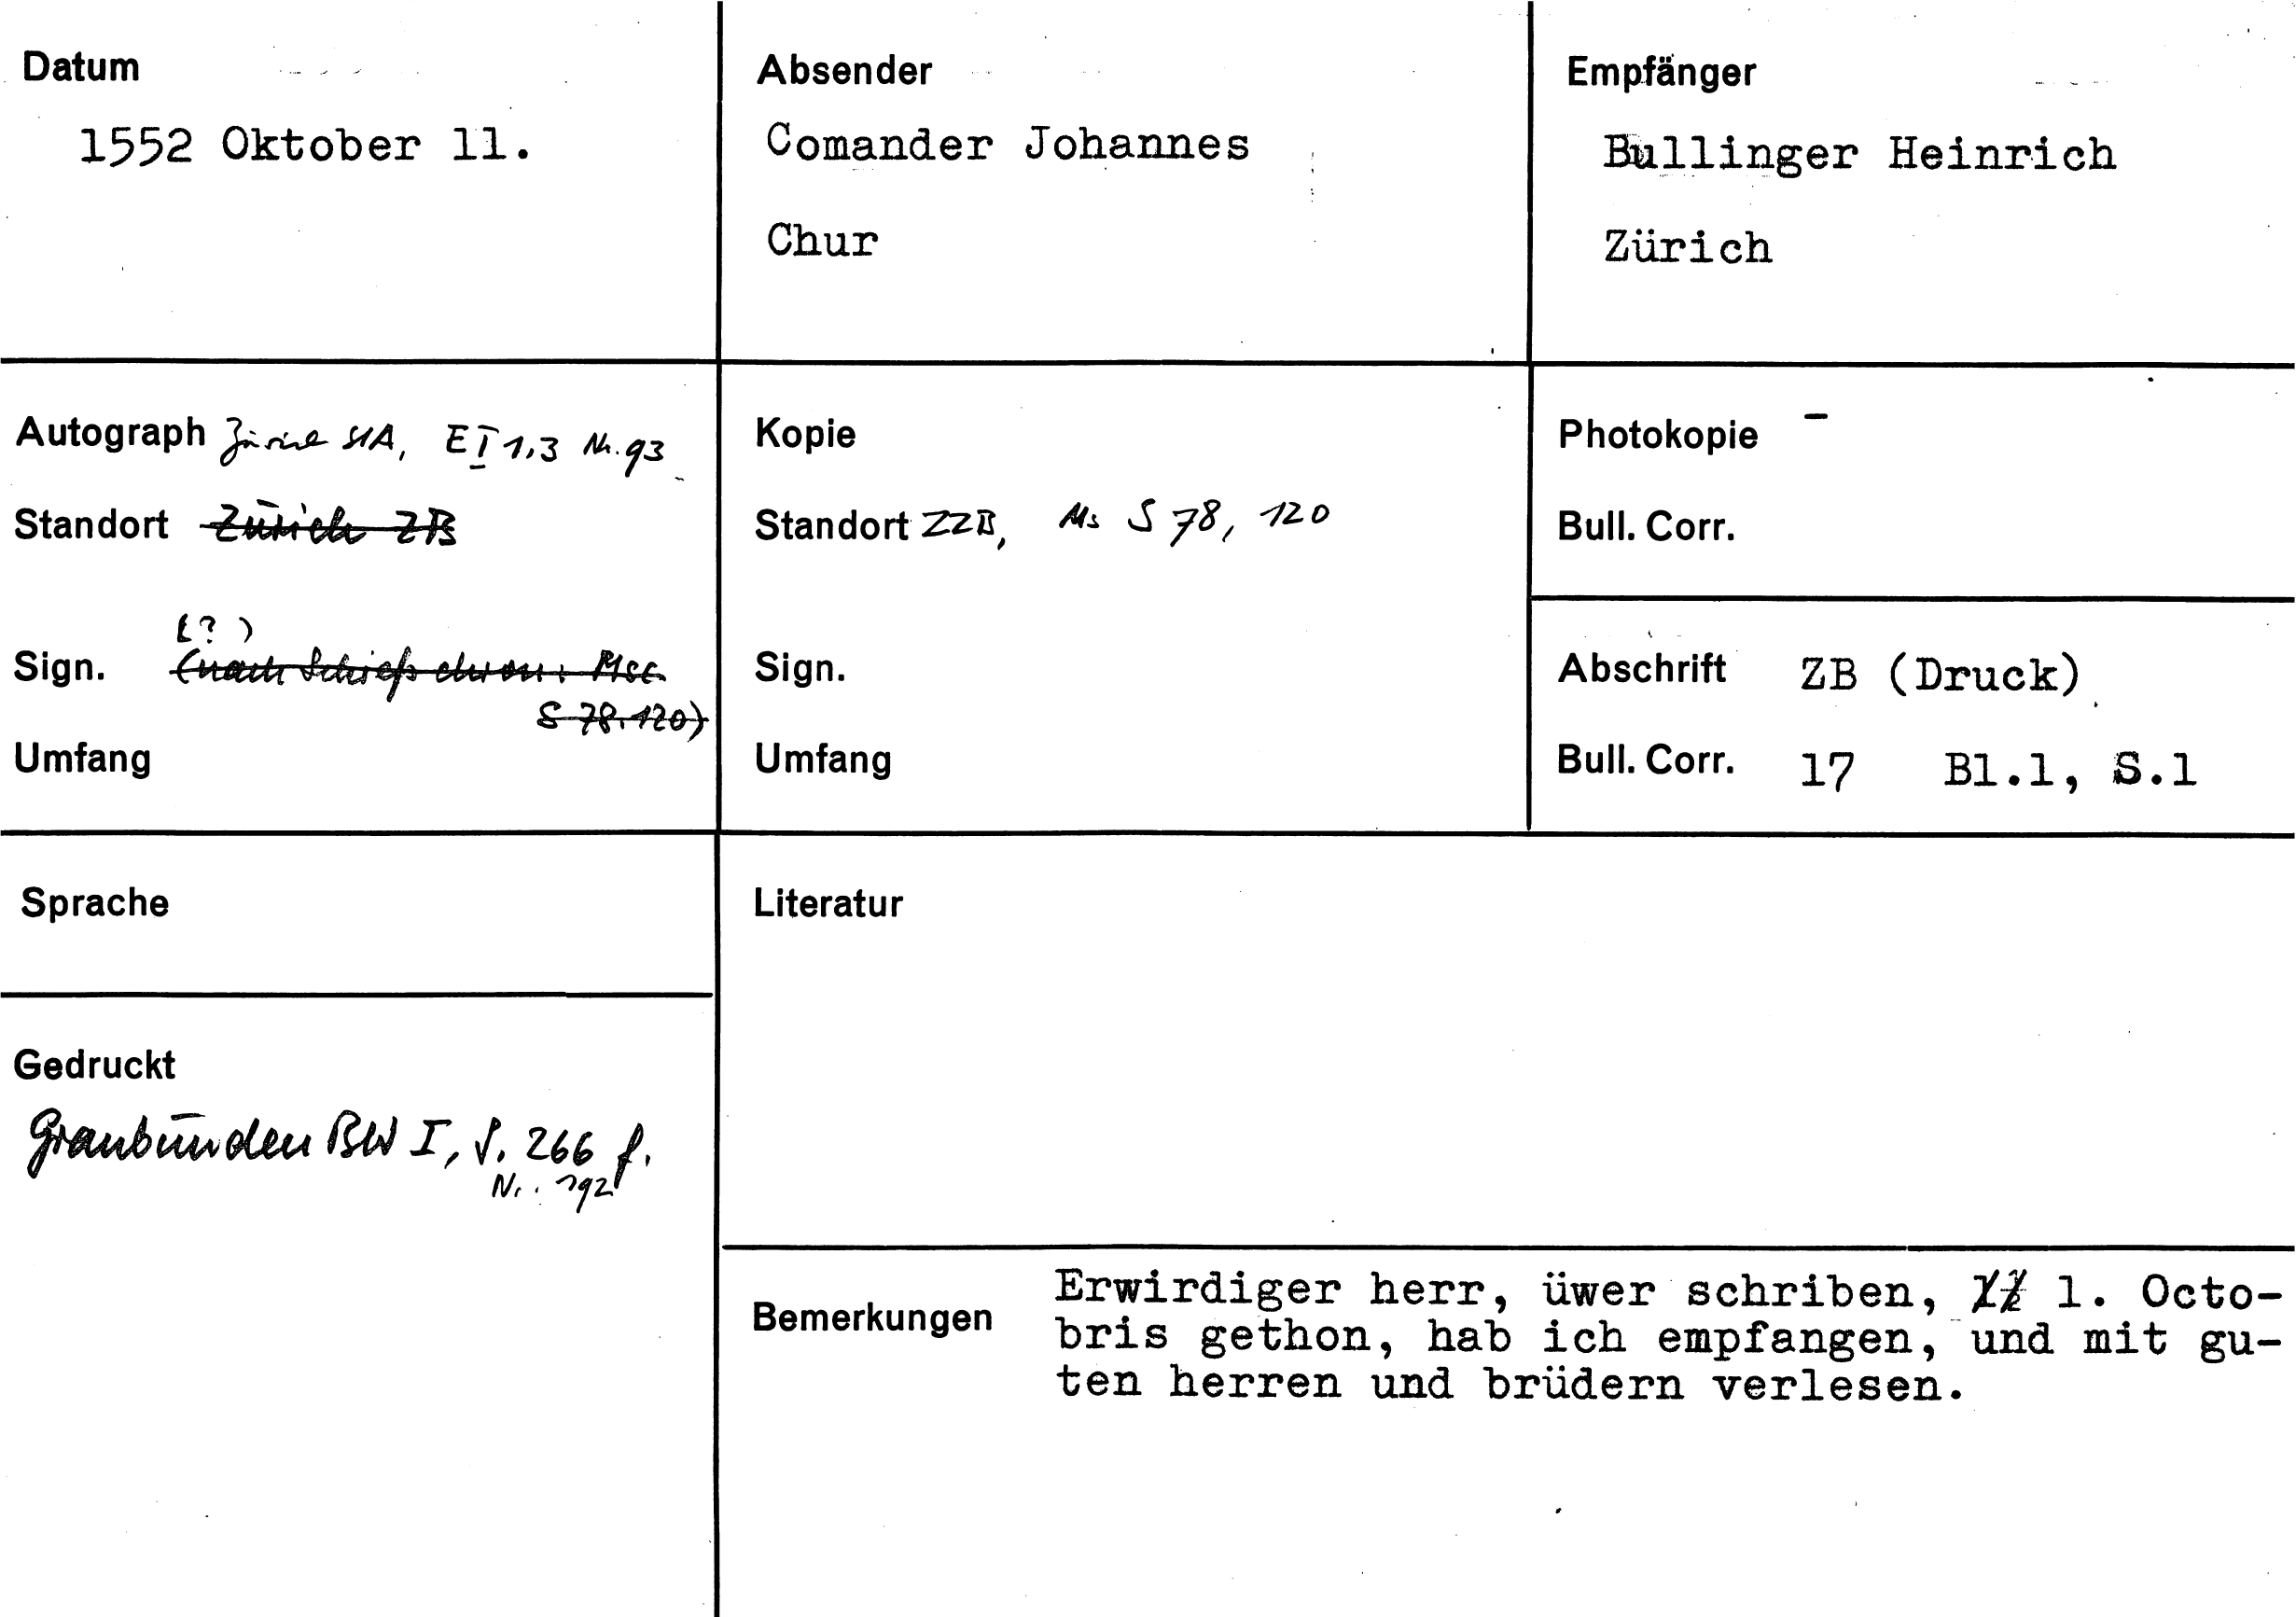 Datum
1552 Oktober 11.
Absender
Comander Johannes
Chur
Empfänger
Bullinger Heinrich
Zürich
Autograph Zürich StA, E I 1,3 Nr. 93
Standort Zürich ZB
(?)
Sign. (nach Schieß ehem. Msc.
S 78.120)
Umfang
Kopie
Standort ZZB, Ms S 78, 120
Sign.
Umfang
Photokopie –
Bull. Corr.
Abschrift ZB (Druck)
Bull. Corr. 17 Bl.1, S.1
Sprache
Gedruckt
Graubünden BW I, S. 266 f.
Nr. 192
Literatur
Bemerkungen
Erwirdiger herr, üwer schriben, 1. Octo-
bris gethon, hab ich empfangen, und mit gu-
ten herren und brüdern verlesen.